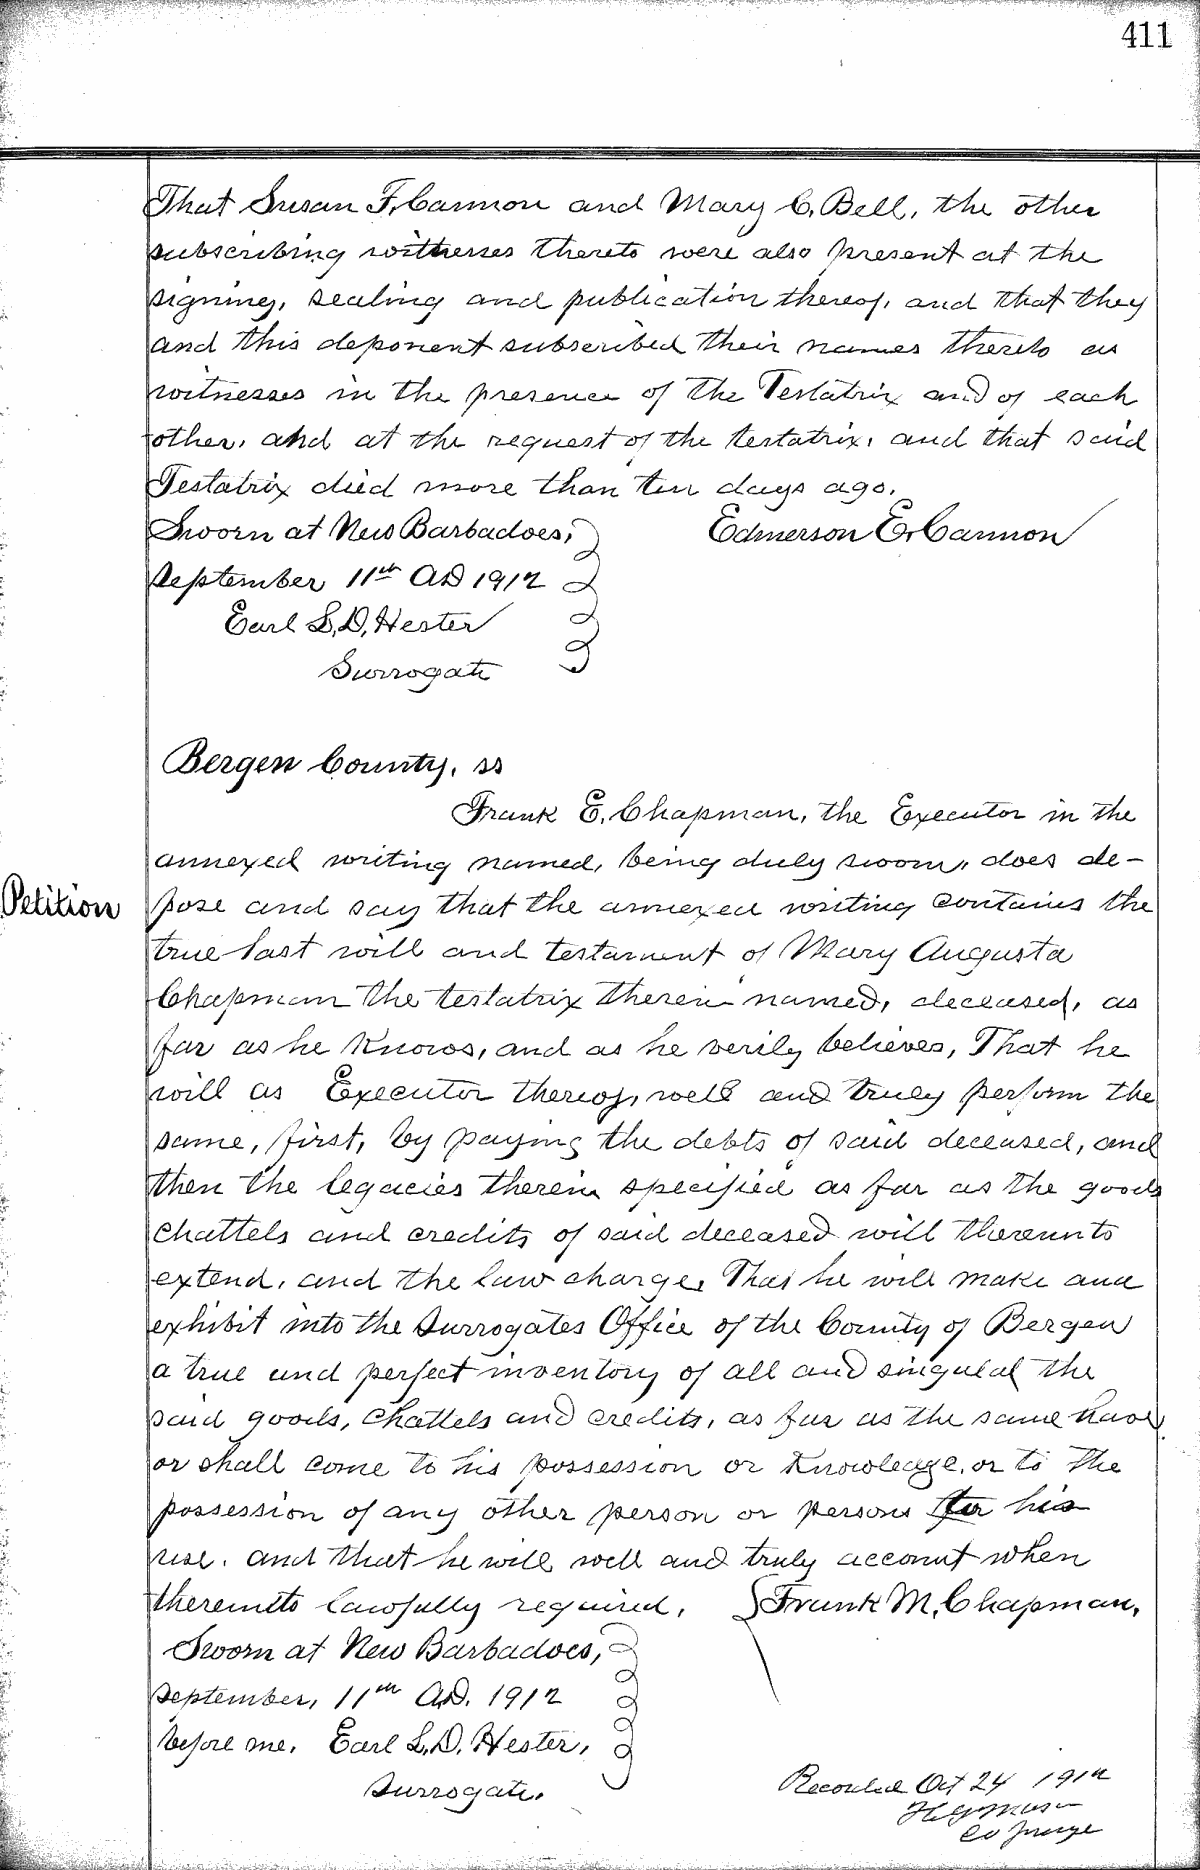 411
That Susan F. Cannon and Mary C. Bell, the other
subscribing witnesses thereto were also present at the
signing, sealing and publication thereof, and that they
and this deponent subscribed their names thereto as
witnesses in the presence of the Testatrix and of each
other, and at the request of the testatrix, and that said
Testatrix died more than ten days ago.
Sworn at New Barbadoes,
Edmerson E. Cannon
September 11th AD 1912
Earl L. D. Hester
Surrogate
Bergen County, ss
Frank E. Chapman, the Executor in the
annexed writing named, being duly sworn, does de-
Petition
pose and say that the annexed writing contains the
true last will and testament of Mary Augusta
Chapman the testatrix therein named, deceased, as
far as he knows, and as he verily believes, That he
will as Executor thereof, well and truly perform the
same, first, by paying the debts of said deceased, and
then the legacies therein specified as far as the goods
chattels and credits of said deceased will thereunto
extend, and the law charge. That he will make and
exhibit into the Surrogates Office of the County of Bergen
a true and perfect inventory of all and singulal the
said goods, chattels and credits, as far as the same have
or shall come to his possession or knowledge, or to the
possession of any other person or persons for his
use, and that he will well and truly account when
thereunto lawfully required.
Frank M. Chapman,
Sworn at New Barbadoes,
September, 11th A.D. 1912
before me, Earl L. D. Hester,
Surrogate.
Recorded Oct 24 1912
Co Judge